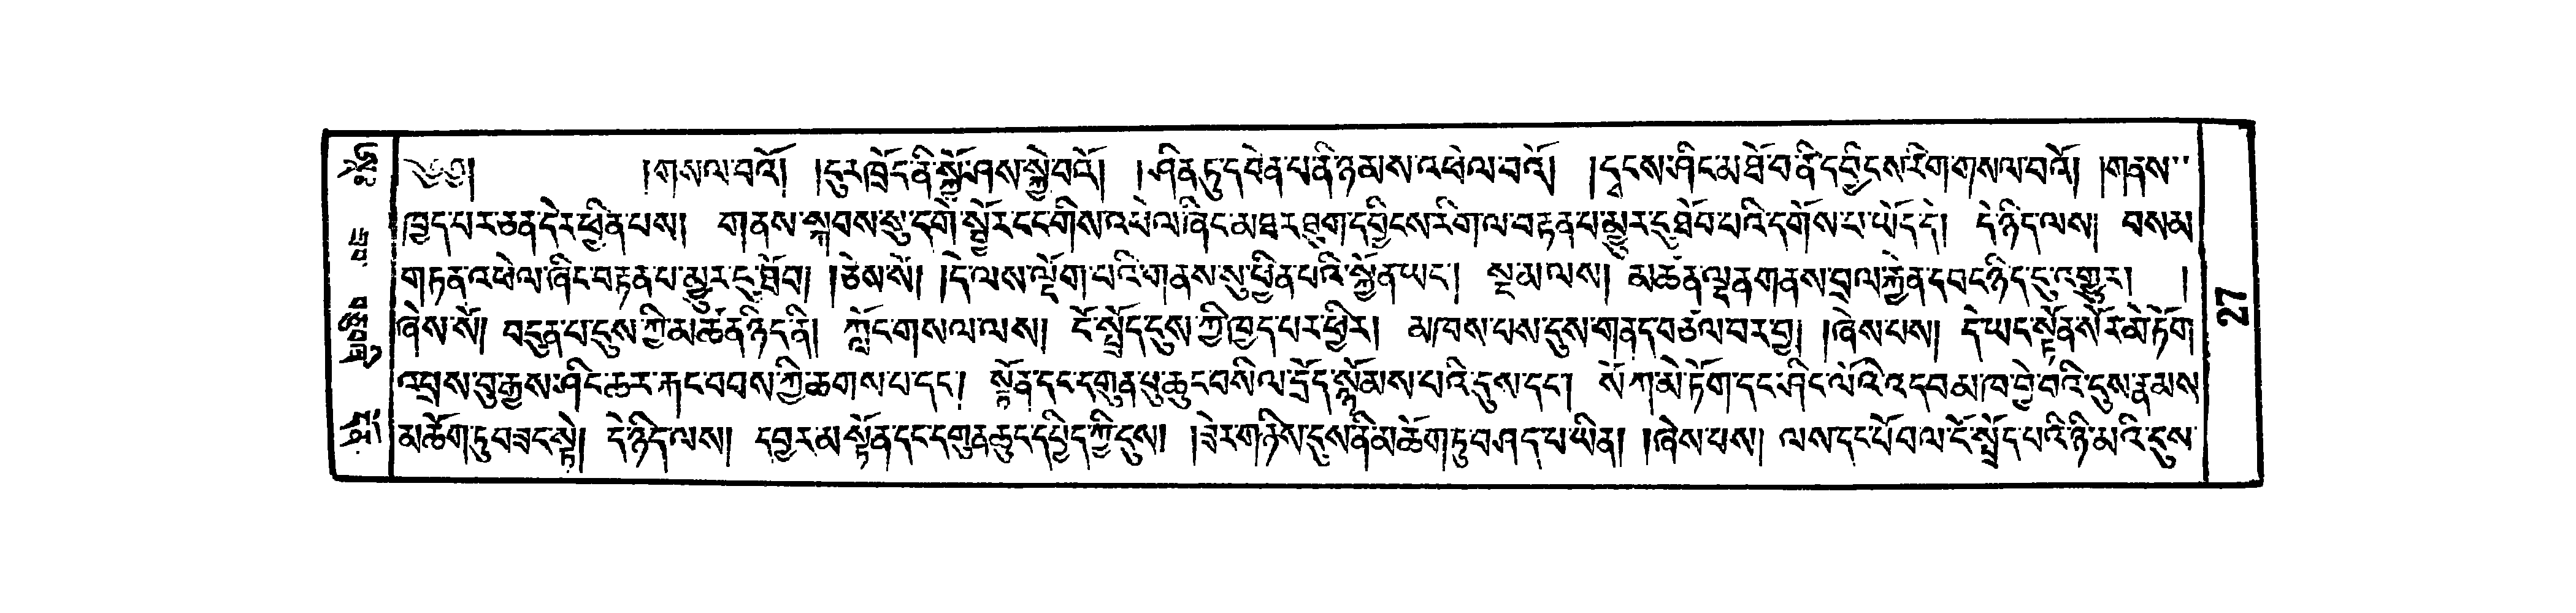 ༄༅། །གསལ་བའོ། །དུར་ཁྲོད་ནི་སྐྱོ་ཤས་སྐྱེ་བའོ། །ཤིན་ཏུ་དབེན་པ་ནི་ཉམས་འཕེལ་བའོ། །དྭངས་ཤིང་མཐོ་བ་ནི་དབྱིངས་རིག་གསལ་བའོ། །གནས་
ཁྱད་པར་ཅན་དེར་ཕྱིན་པས། གནས་སྐབས་སུ་དགེ་སྦྱོར་ངང་གིས་འཕེལ་ཞིང་མཐར་ཐུག་དབྱིངས་རིག་ལ་བརྟན་པ་མྱུར་དུ་ཐོབ་པའི་དགོས་པ་ཡོད་དེ། དེ་ཉིད་ལས། བསམ་
གཏན་འཕེལ་ཞིང་བརྟན་པ་མྱུར་དུ་ཐོབ། །ཅེས་སོ། །དེ་ལས་ལྡོག་པའི་གནས་སུ་ཕྱིན་པའི་སྐྱོན་ཡང་། སྔ་མ་ལས། མཚན་ལྡན་གནས་བྲལ་རྐྱེན་དབང་ཉིད་དུ་འགྱུར། །
ཞེས་སོ། བདུན་པ་དུས་ཀྱི་མཚན་ཉིད་ནི། ཀློང་གསལ་ལས། ངོ་སྤྲོད་དུས་ཀྱི་ཁྱད་པར་ཕྱིར། མཁས་པས་དུས་གནད་བཙལ་བར་བྱ། །ཞེས་པས། དེ་ཡང་སྟོན་སོར་མེ་ཏོག་
འབྲས་བུ་རྒྱས་ཤིང་ཆར་རྐང་བབས་ཀྱི་ཆགས་པ་དང་། སྟོན་དང་དགུན་ཕུ་ཆུང་བསིལ་དྲོད་སྙོམས་པའི་དུས་དང་། སོ་ཀ་མེ་ཏོག་དང་ཤིང་ལོའི་འདབ་མ་ཁ་བྱེ་བའི་དུས་རྣམས་
མཆོག་ཏུ་བཟང་སྟེ། དེ་ཉིད་ལས། དབྱར་མ་སྟོན་དང་དགུན་ཆུང་དཔྱིད་ཀྱི་དུས། །ཟེར་གཉིས་དུས་ནི་མཆོག་ཏུ་བཤད་པ་ཡིན། །ཞེས་པས། ལས་དང་པོ་བལ་ངོ་སྤྲོད་པའི་ཉི་མའི་དུས་